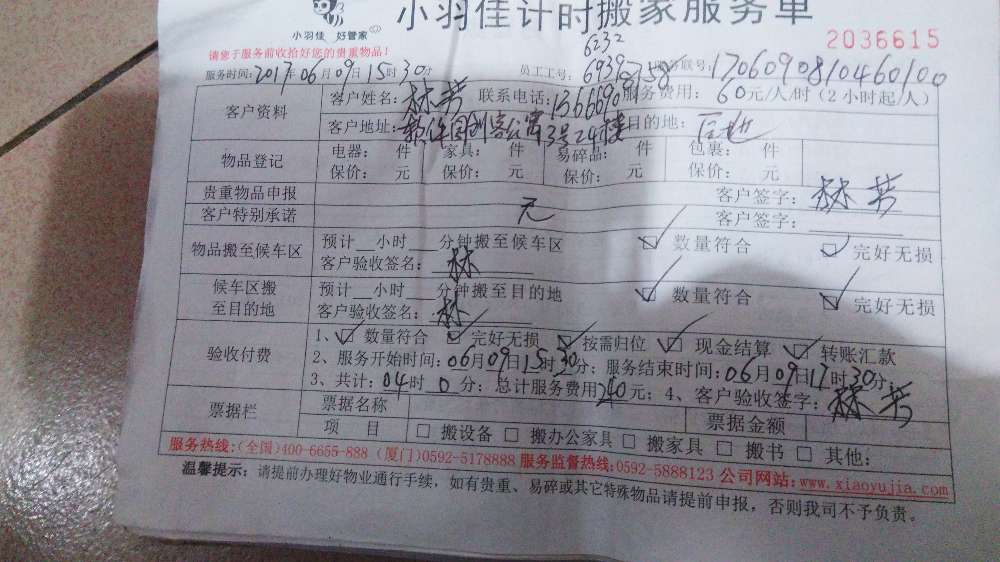 小羽佳计时搬家服务单
小羽佳 好管家
2036615
请您于服务前收拾好您的贵重物品!
6232
服务时间:2017年06月09日15时30分 员工工号: 6939 8758 服务联号:1706090810460100
客户资料 客户姓名:林芳 联系电话: 服务费用:60元/人/时(2小时起/人)
客户地址:软件园创客公寓3号24楼 目的地:
物品登记 电器: 件 家具: 件 易碎品: 件 包裹: 件
保价: 元 保价: 元 保价: 元 保价: 元
贵重物品申报 客户签字:林芳
客户特别承诺 无 客户签字:
物品搬至候车区 预计__小时___分钟搬至候车区 ☑数量符合 ☑完好无损
客户验收签名:林
候车区搬至目的地 预计__小时___分钟搬至目的地 ☑数量符合 ☑完好无损
客户验收签名:林
验收付费 1、☑数量符合 ☑完好无损 ☑按需归位 ☑现金结算 ☑转账汇款
2、服务开始时间:06月09日15时30分;服务结束时间:06月09日17时30分
3、共计:04时0分;总计服务费用240元;4、客户验收签字:林芳
票据栏 票据名称 票据金额
项 目 □搬设备 □搬办公家具 □搬家具 □搬书 □其他:
服务热线:(全国)400-6655-888 (厦门)0592-5178888 服务监督热线:0592-5888123 公司网站:www.xiaoyujia.com
温馨提示:请提前办理好物业通行手续,如有贵重、易碎或其它特殊物品请提前申报,否则我司不予负责。